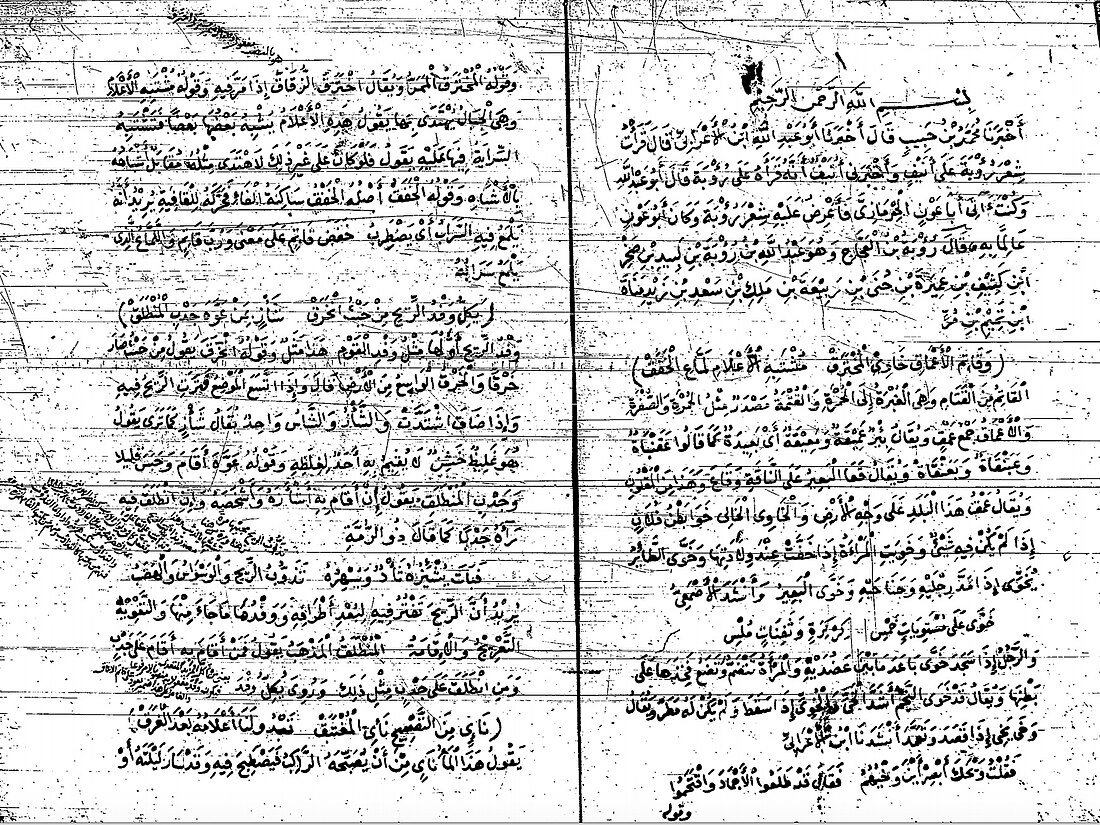 بسم الله الرحمن الرحيم
أخبرنا محمد بن حبيب قال أخبرنا أبو عبد الله ابن الأعرابي قال قرأت
شعر رؤبة على أنيف وأخبرني أنيف أنه قرأه على رؤبة قال أبو عبد الله
وكنت آتي أبا عون الحرمازي فأعرض عليه شعر رؤبة وكان أبو عون
عالما به قال رؤبة بن العجاج وهو عبد الله بن رؤبة بن لبيد بن صخر
ابن كنيف بن عميرة بن حني بن ربيعة بن ملك بن سعد بن زيد مناة
ابن تميم بن مر
(وقاتم الأعماق خاوي المخترق مشتبه الأعلام لماع الخفق)
القاتم من القتام وهي الغبرة إلى الحمرة والقتمة مصدر مثل الحمرة والصفرة
والأعماق جمع عمق ويقال بئر عميقة ومعيقة أي بعيدة كما قالوا عقنباة
وعبنقاة وبعنقاة ويقال قعا البعير على الناقة وقاع وهذا من المقلوب
ويقال عمق هذا البلد على وجه الأرض والخاوي الخالي خوا بطن فلان
إذا لم يكن فيه شيء وخويت المرأة إذا خفت عند ولادتها وخوى الطائر
يخوي إذا مد رجليه وجناحيه وخوى البعير وأنشد الأصمعي
خوى على مستويات خمس كركرة وثفنات ملس
والرجل إذا سجد خوى باعد ما بين عضديه والمرأة تنضم وتضع فخذيها على
بطنها ويقال قد خوى النجم أشد الخي إذا سقط ولم يكن له مطر ويقال
وخى يخي إذا قصد أنشدنا ابن الأعرابي
فقلت ويحك أبصر أين وخيهم فقال قد طلعوا الأجماد واقتحموا
وقوله
هو بالنصب
وقوله المخترق الممر ويقال اخترق الزقاق إذا مر فيه وقوله مشتبه الأعلام
وهي الجبال يهتدى بها يقول هذه الأعلام يشبه بعضها بعضا فتشتبه
السراية فيها عليه يقول فلو كان على غير ذلك لاهتدى
بالأشباه وقوله الخفق أصله الخفق ساكنة الفاء فحركه للقافية يريد أنه
يلمع فيه السراب أي يضطرب خفض قاتم على معنى ورب قاتم واللماع الذي
يلمع سرابه
(يكل وفد الريح من حيث انخرق شأز بمن عوه جدب المنطلق)
وفد الريح أولها مثل وفد القوم هذا مثل وقوله انخرق يقول من حيث صار
خرقا والخرق الواسع من الأرض قال وإذا اتسع الموضع فترت الريح فيه
وإذا ضاق اشتدت والشأز والشأس واحد يقال شأز كما ترى يقول
هو غليظ خشن لا يقيم به أحد لغلظه وقوله عوه أقام وحبس قليلا
وجدب المنطلق يقول إن أقام به أشأزه وأشخصه وإن انطلق فيه
مرآه جدبا كما قال ذو الرمة
فبات يشئزه ثأد ويسهره تذؤب الريح والوسواس والهضب
يريد أن الريح تفتر فيه لبعد أطرافه ووفدها ما جاء منها والتعويه
التعريج والإقامة المنطلق المذهب يقول من أقام به أقام على جدب
ومن انطلق انطلق على جدب مثل ذلك ويروى بكل وفد
(ناي من التصبيح ناي المغتبق تبدو لنا أعلامه بعد الغرق)
يقول هذا الماء ناي من أن يصبحه الراكب فيصطبح فيه وقد سار ليلته أو